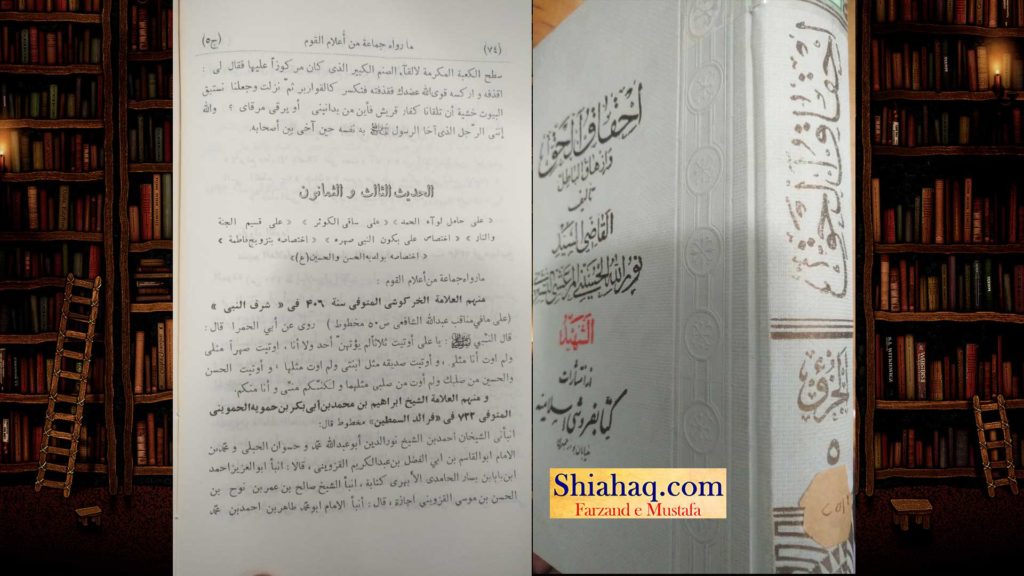 (٧٤)
ما رواه جماعة من أعلام القوم
(ج٥)
سطح الكعبة المكرمة لالقاء الصنم الكبير الذى كان مركوزاً عليها فقال لى :
اقذفه و اركسه قوى الله عضدك فقذفته فتكسر كالقوارير ثم نزلت وجعلنا نستبق
البيوت خشية أن تلقانا كفار قريش فأين من يدانينى أو يرقى مرقاى ؟ والله
إننى الرجل الذى آخا الرسول ﷺ به نفسه حين آخى بين أصحابه.
الحديث الثالث و الثمانون
« على حامل لوآء الحمد » « على ساقى الكوثر » « على قسيم الجنة
والنار » « اختصاص على بكون النبى صهره » « اختصاصه بتزويج فاطمة »
« اختصاصه بولديه الحسن والحسين(ع)»
مارواه جماعة من أعلام القوم :
منهم العلامة الخرگوشى المتوفى سنة ٤٠٦ فى « شرف النبى »
(على مافي مناقب عبدالله الشافعى ص٥٠ مخطوط ) روى عن أبي الحمرا قال :
قال النبي ﷺ : يا على أوتيت ثلاثاً لم يؤتهن أحد ولا أنا ، اوتيت صهراً مثلى
ولم اوت أنا مثلى ، و أوتيت صديقه مثل ابنتى ولم اوت مثلها ، و أوتيت الحسن
والحسين من صلبك ولم أوت من صلبى مثلهما ولكنكم منى و أنا منكم.
و منهم العلامة الشيخ ابراهيم بن محمد بن أبى بكر بن حمويه الحموينى
المتوفى ٧٢٢ فى «فرائد السمطين» مخطوط قال:
انبأنى الشيخان احمد بن الشيخ نورالدين أبو عبدالله محمد و حسوان الحبلى و محمد بن
الامام ابوالقاسم بن ابى الفضل بن عبدالكريم القزوينى ، قالا : انبأ ابوالعزيز احمد
ابن بابا بن يسار الحامدى الأبهرى كتابة ، انبأ الشيخ صالح بن عمر بن نوح بن
الحسن بن موسى القزوينى اجازة ، قال : أنبأ الامام ابو محمد طاهر بن احمد بن محمد
احقاق الحق
وازهاق الباطل
تأليف
القاضى السيد
نور الله الحسينى المرعشى
الشهيد
از انتشارات
كتابفروشى اسلاميه
احقاق الحق
الجزء
٥
Shiahaq.com
Farzand e Mustafa